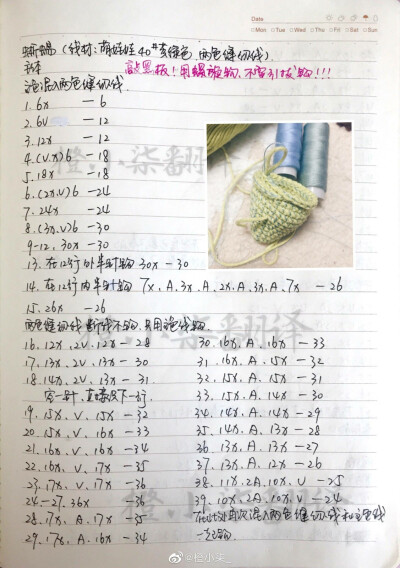 Date
Mon Tue Wed Thu Fri Sat Sun
蜥蜴 (线材:萌娃娃40#黄绿色,两色缝纫线)
敲黑板!用螺旋钩,不需引拔钩!!!
身体
混入两色缝纫线
1. 6x — 6
2. 6v — 12
3. 12x — 12
4. (x.v)6 — 18
5. 18x — 18
6. (2x.v)6 — 24
7. 24x — 24
8. (3x.v)6 — 30
9-12. 30x — 30
13. 在12行外半针钩 30x — 30
14. 在12行内半针钩 7x, A, 3x, A, 2x, A, 3x, A, 7x — 26
15. 26x — 26
两色缝纫线断线不钩,只用线钩
16. 12x, 2v, 12x — 28
17. 13x, 2v, 13x — 30
18. 14x, 2v, 13x — 31
空一针,直接钩下一行
19. 15x, v, 15x — 32
20. 15x, v, 16x — 33
21. 16x, v, 16x — 34
22. 16x, v, 17x — 35
23. 17x, v, 17x — 36
24-27. 36x — 36
28. 17x, A, 17x — 35
29. 17x, A, 16x — 34
30. 16x, A, 16x — 33
31. 16x, A, 15x — 32
32. 15x, A, 15x — 31
33. 15x, A, 14x — 30
34. 14x, A, 14x — 29
35. 14x, A, 13x — 28
36. 13x, A, 13x — 27
37. 13x, A, 12x — 26
38. 11x, 2A, 10x, v — 25
39. 10x, 2A, 10x, v — 24
在此处再次混入两色缝纫线和主色线
一起钩
橙小柒翻译
@橙小柒